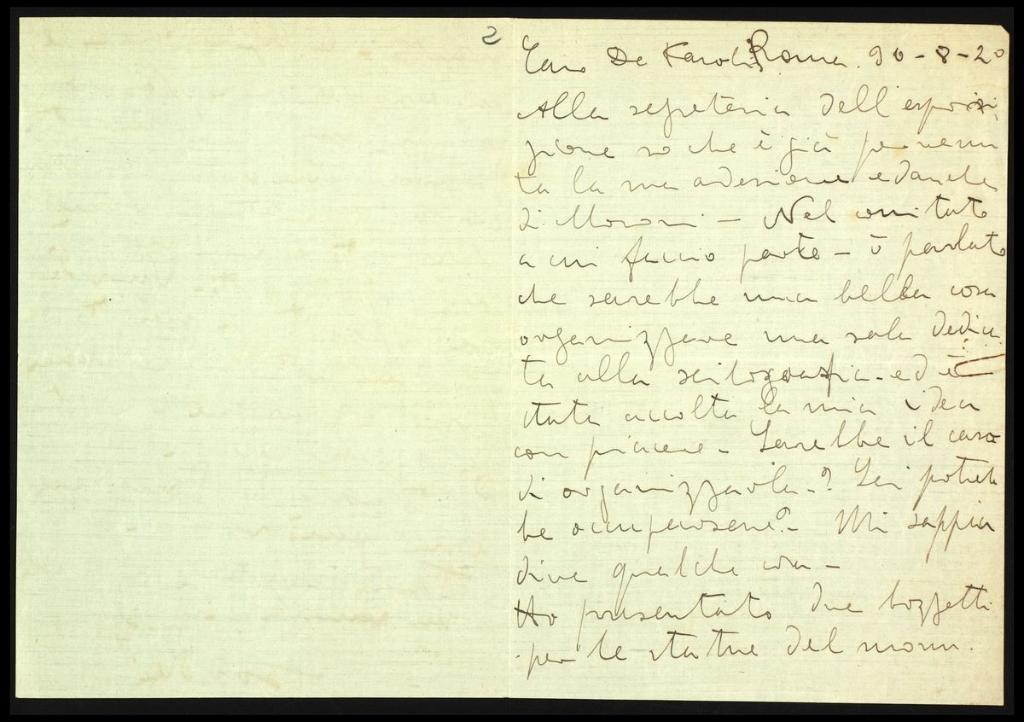 2
Caro De Karolis Roma. 30-8-20
Alla segreteria dell'esposi
zione so che è già pervenu
ta la mia adesione ed anche
di Moroni - Nel comitato
a cui faccio parte - ò parlato
che sarebbe una bella cosa
organizzare una sala dedica
ta alla silografia - ed è
stata accolta la mia idea
con piacere - Sarebbe il caso
di organizzarla-? Lei potreb
be occuparsene?- Mi sappia
dire qualche cosa -
Ho presentato due bozzetti
per le statue del monu.